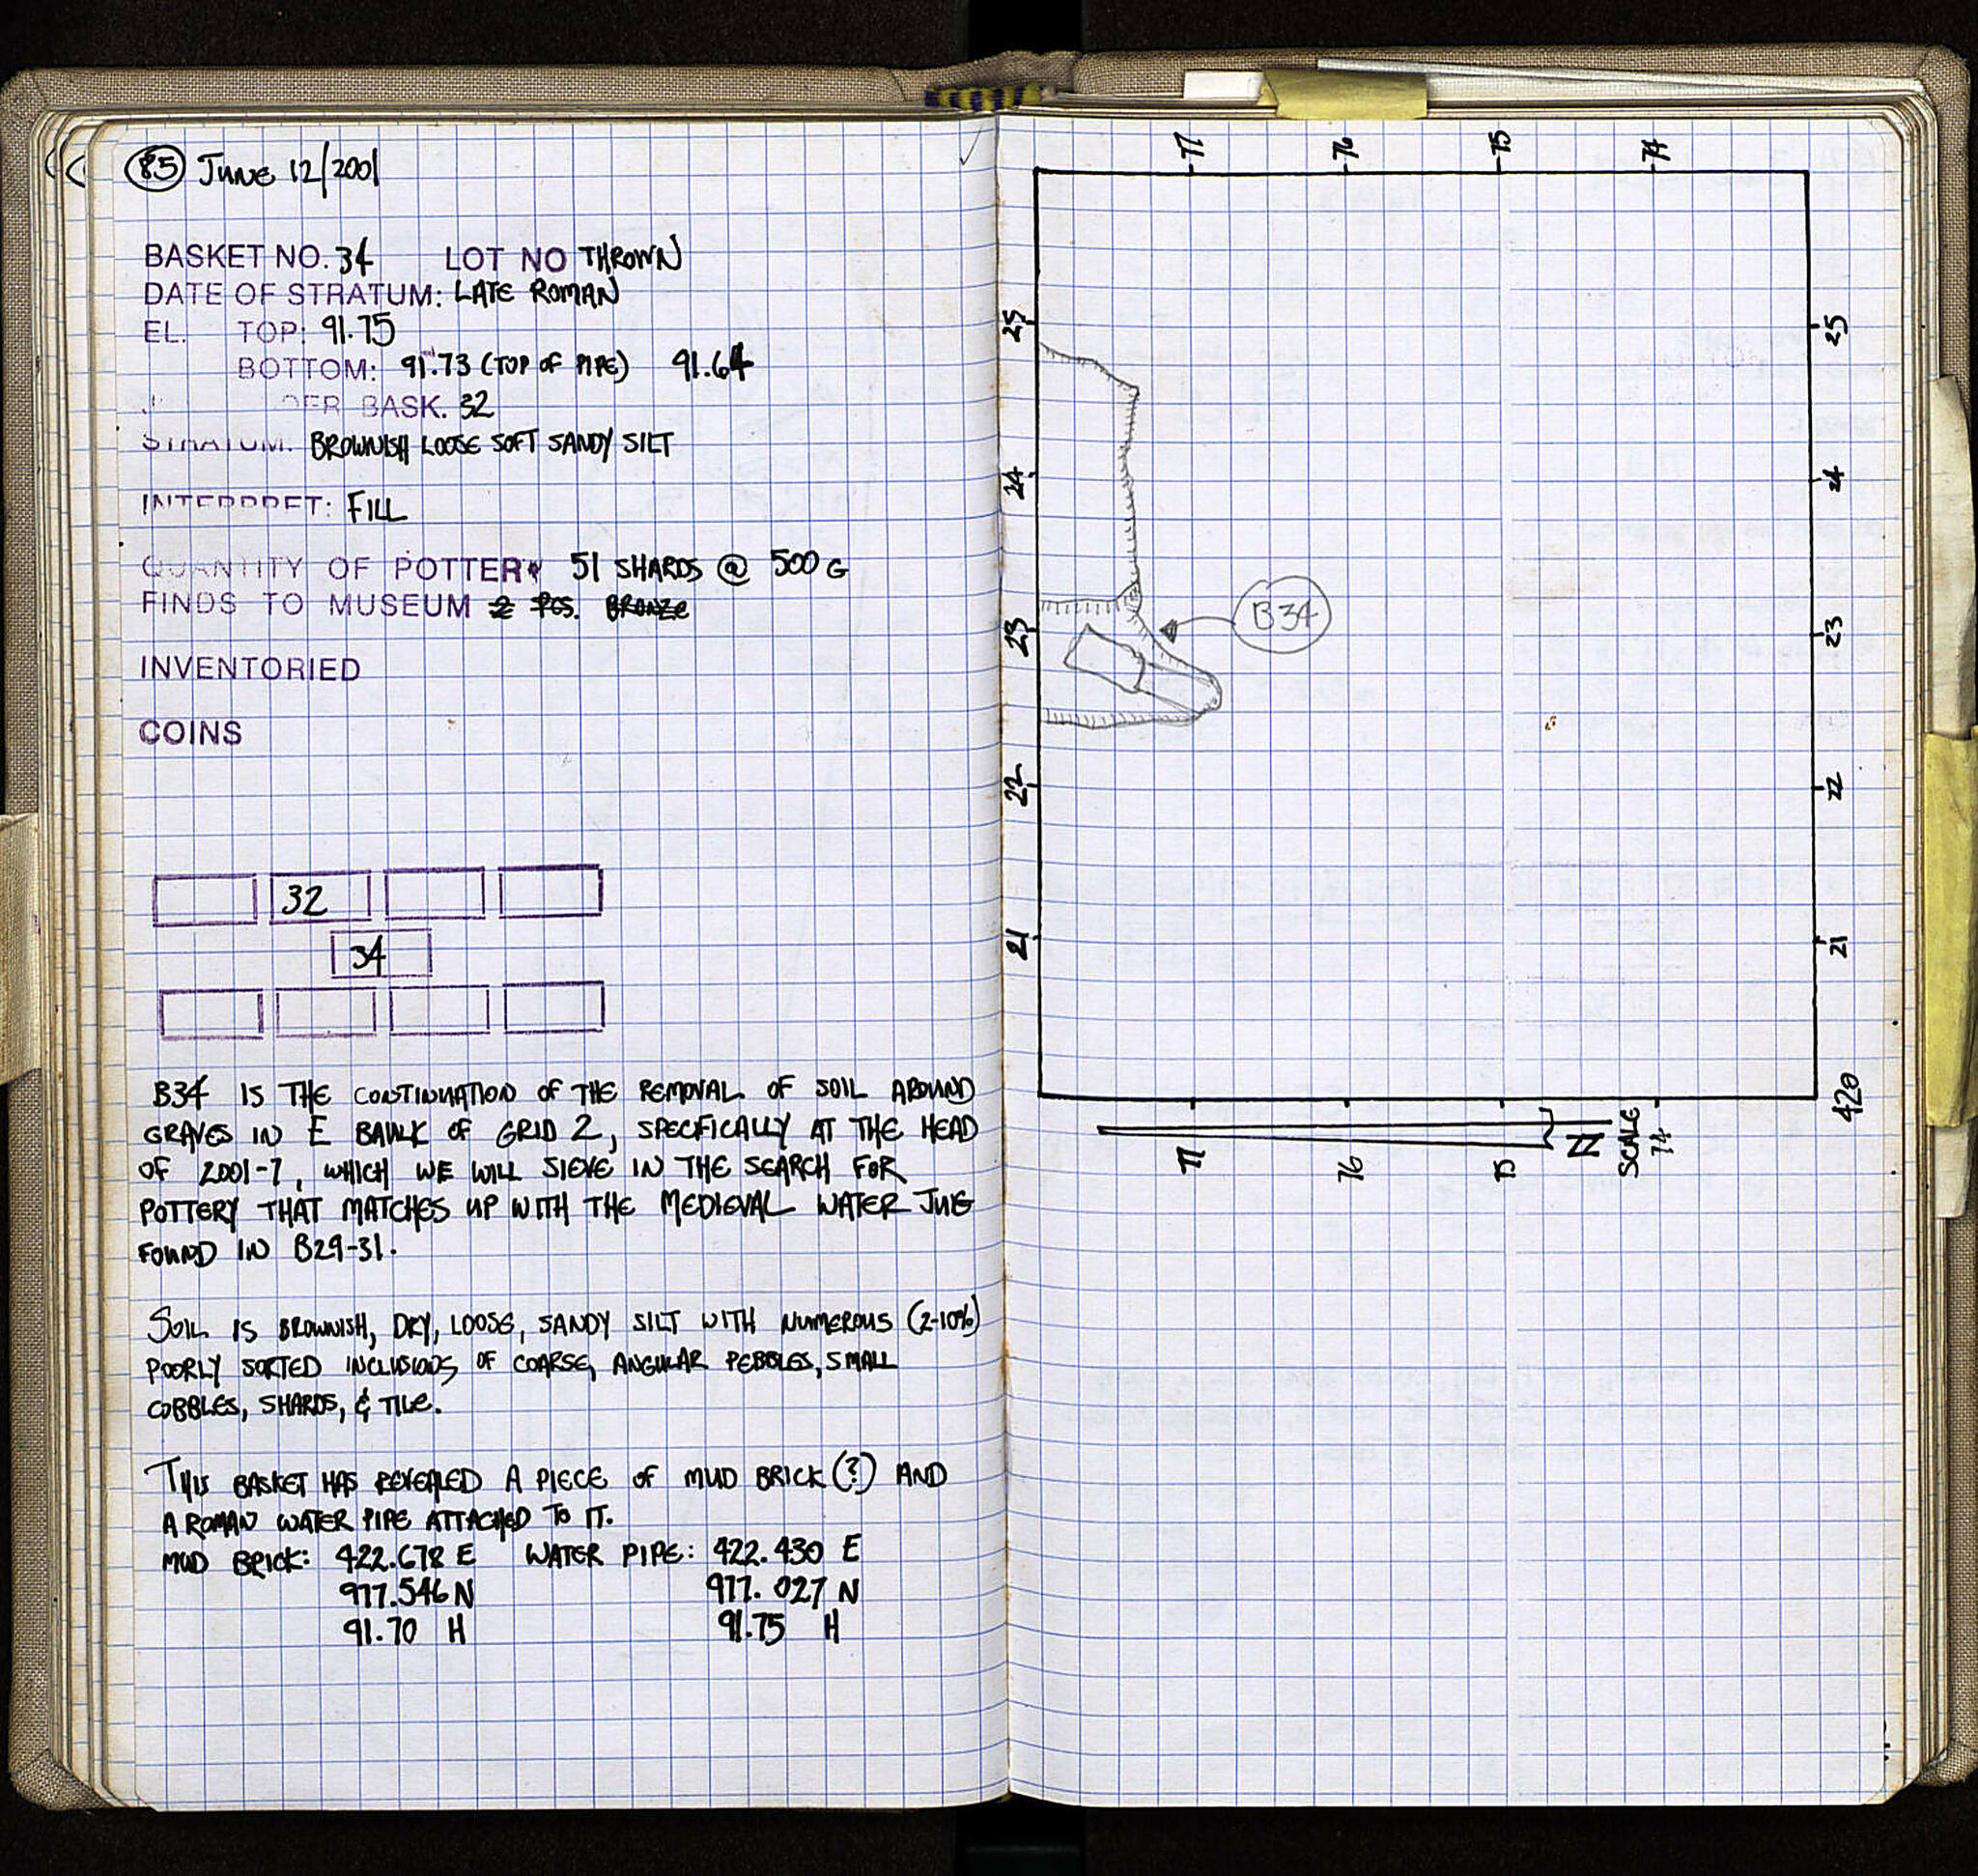 85 JUNE 12/2001
BASKET NO. 34 LOT NO THROWN
DATE OF STRATUM: LATE ROMAN
EL. TOP: 91.75
BOTTOM: 91.73 (TOP OF PIPE) 91.64
BASK. 32
STRATUM: BROWNISH LOOSE SOFT SANDY SILT
INTERPRET: FILL
QUANTITY OF POTTERY 51 SHARDS @ 500 G
FINDS TO MUSEUM 2 PCS. BRONZE
INVENTORIED
COINS
32
34
B34 IS THE CONTINUATION OF THE REMOVAL OF SOIL AROUND
GRAVES IN E BAULK OF GRID 2, SPECIFICALLY AT THE HEAD
OF 2001-7, WHICH WE WILL SIEVE IN THE SEARCH FOR
POTTERY THAT MATCHES UP WITH THE MEDIEVAL WATER JUG
FOUND IN B29-31.
SOIL IS BROWNISH, DRY, LOOSE, SANDY SILT WITH NUMEROUS (2-10%)
POORLY SORTED INCLUSIONS OF COARSE, ANGULAR PEBBLES, SMALL
COBBLES, SHARDS, & TILE.
THIS BASKET HAS REVEALED A PIECE OF MUD BRICK (?) AND
A ROMAN WATER PIPE ATTACHED TO IT.
MUD BRICK: 422.678 E WATER PIPE: 422.430 E
977.546 N 977.027 N
91.70 H 91.75 H
77 76 75 74
25 25
24 24
23 B34 23
22 22
21 21
420
77 76 75 N SCALE 74